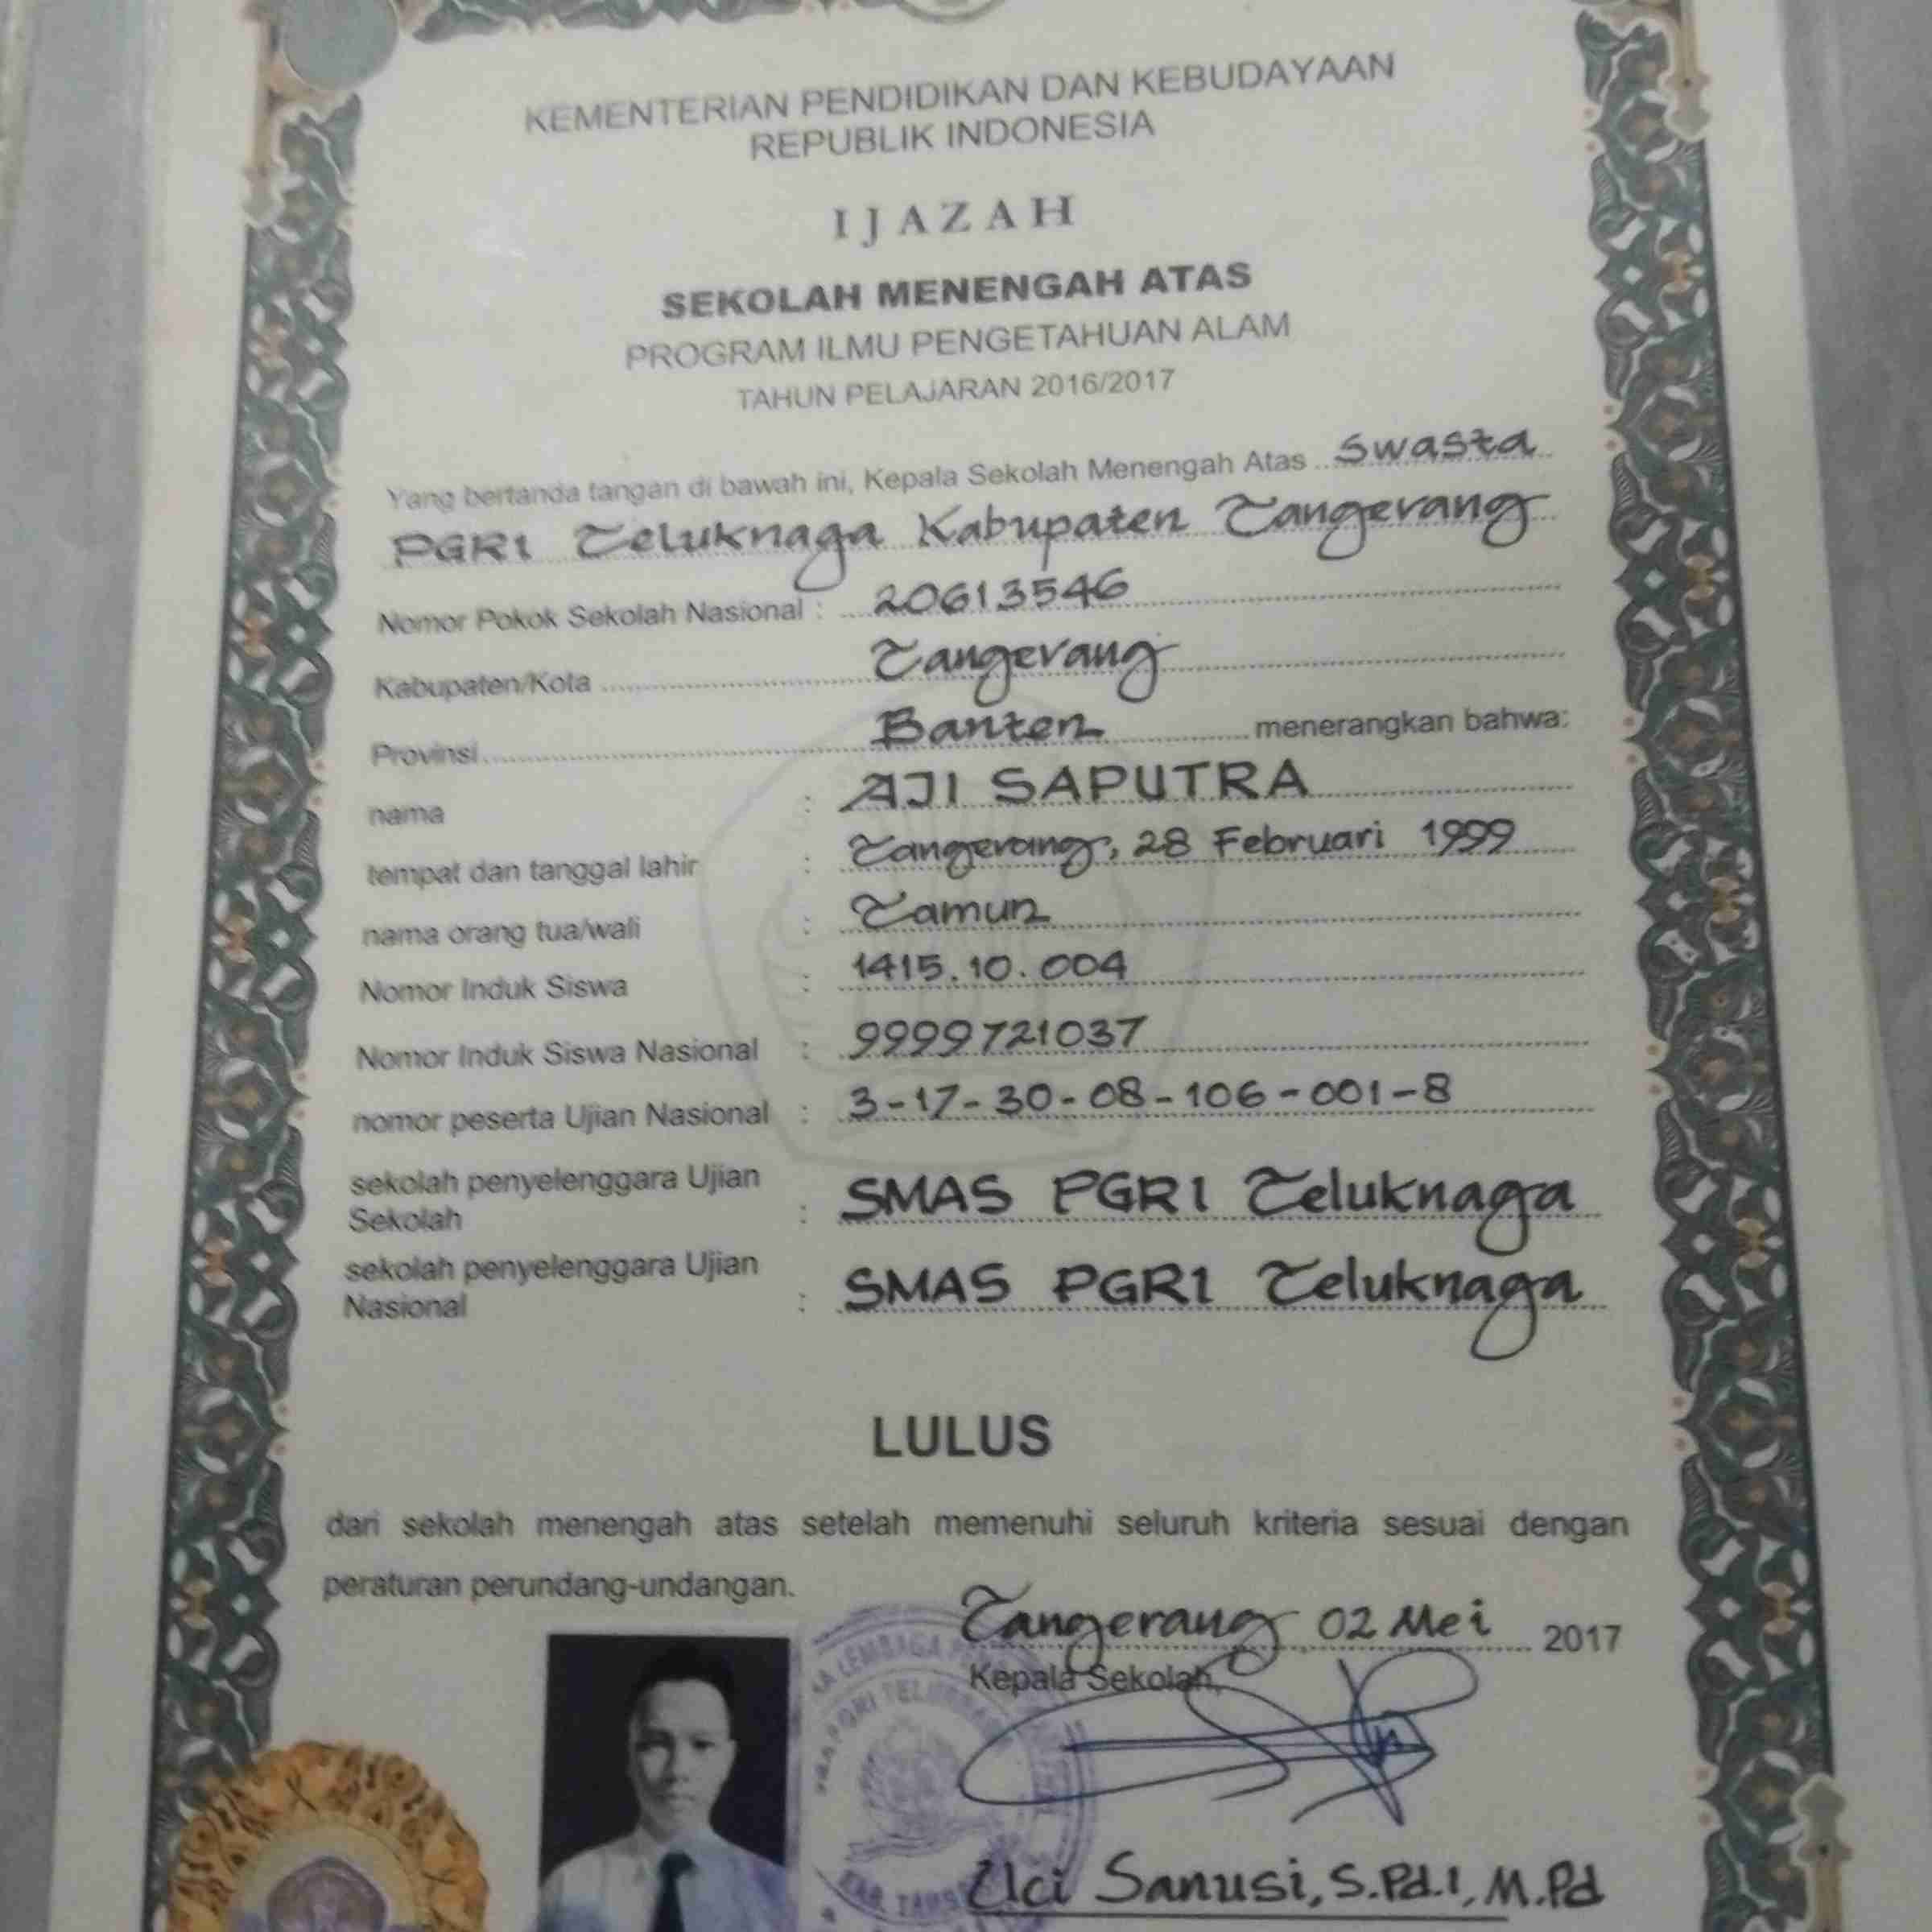 KEMENTERIAN PENDIDIKAN DAN KEBUDAYAAN
REPUBLIK INDONESIA
IJAZAH
SEKOLAH MENENGAH ATAS
PROGRAM ILMU PENGETAHUAN ALAM
TAHUN PELAJARAN 2016/2017
Yang bertanda tangan di bawah ini, Kepala Sekolah Menengah Atas Swasta
PGRI Teluknaga Kabupaten Tangerang
Nomor Pokok Sekolah Nasional : 20613546
Kabupaten/Kota Tangerang
Provinsi Banten menerangkan bahwa:
nama : AJI SAPUTRA
tempat dan tanggal lahir : Tangerang, 28 Februari 1999
nama orang tua/wali : Tamun
Nomor Induk Siswa : 1415.10.004
Nomor Induk Siswa Nasional : 9999721037
nomor peserta Ujian Nasional : 3-17-30-08-106-001-8
sekolah penyelenggara Ujian
Sekolah : SMAS PGRI Teluknaga
sekolah penyelenggara Ujian
Nasional : SMAS PGRI Teluknaga
LULUS
dari sekolah menengah atas setelah memenuhi seluruh kriteria sesuai dengan
peraturan perundang-undangan.
Tangerang, 02 Mei 2017
Kepala Sekolah,
LEMBAGA
PGRI
KAB.
Uci Sanusi, S.Pd.I, M.Pd